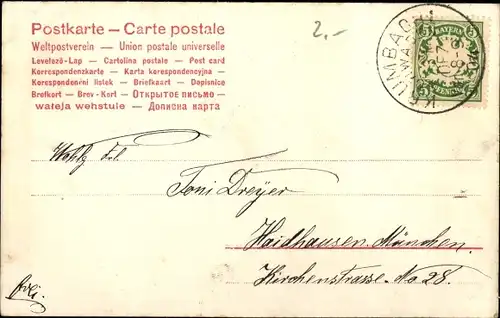 Postkarte — Carte postale
Weltpostverein — Union postale universelle
Levelező-Lap — Cartolina postale — Post card
Korespondenzkarte — Karta korespondencyjna —
Korespondenční lístek — Briefkaart — Dopisnice
Brefkort — Brev-Kort — Открытое письмо —
wateja wehstule — Дописна карта
2,-
KRUMBACH
BAYERN
5 5
PFENNIG
Wohlg. Frl.
Toni Dreyer
Haidhausen. München.
Kirchenstrasse. No 28.
frei.